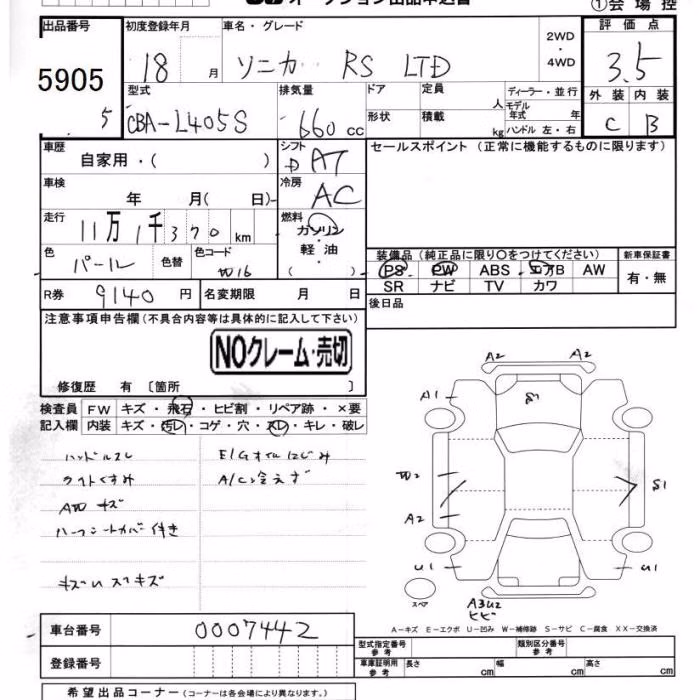 オークション出品申込書
① 会場控
出品番号 初度登録年月 車名・グレード 2WD ・ 4WD 評価点
5905 18 月 ソニカ RS LTD 3.5
5 型式 排気量 ドア 定員 人 ディーラー・並行 外装 内装
CBA-L405S 660 cc 形状 積載 kg モデル年式 年 C B
ハンドル 左・右
車歴 自家用・( ) シフト D AT セールスポイント (正常に機能するものに限ります)
車検 年 月( 日) 冷房 AC
走行 11万1千370 km 燃料 ガソリン・軽油 ( )
色 パール 色替 色コード W16
装備品 (純正品に限り○をつけてください) 新車保証書
PS PW ABS エアB AW 有・無
SR ナビ TV カワ
R券 9140 円 名変期限 月 日 後日品
注意事項申告欄 (不具合内容等は具体的に記入して下さい)
NOクレーム・売切
修復歴 有 〔箇所 〕
検査員 FW キズ・飛石・ヒビ割・リペア跡・×要
記入欄 内装 キズ・汚レ・コゲ・穴・スレ・キレ・破レ
ハンドルスレ E/Gオイルにじみ
ライトくすみ A/C冷えず
AW キズ
ハーフシートカバー付き
キズUスリキズ
A2 A2
A1 S1
W2 S1
A2
U1 U1
スペア A3U2
ヒビ
A-キズ E-エクボ U-凹み W-補修跡 S-サビ C-腐食 XX-交換済
車台番号 0007442 型式指定番号 参考 類別区分番号 参考
登録番号 車庫証明用 参考 長さ cm 幅 cm 高さ cm
希望出品コーナー (コーナーは各会場により異なります。)